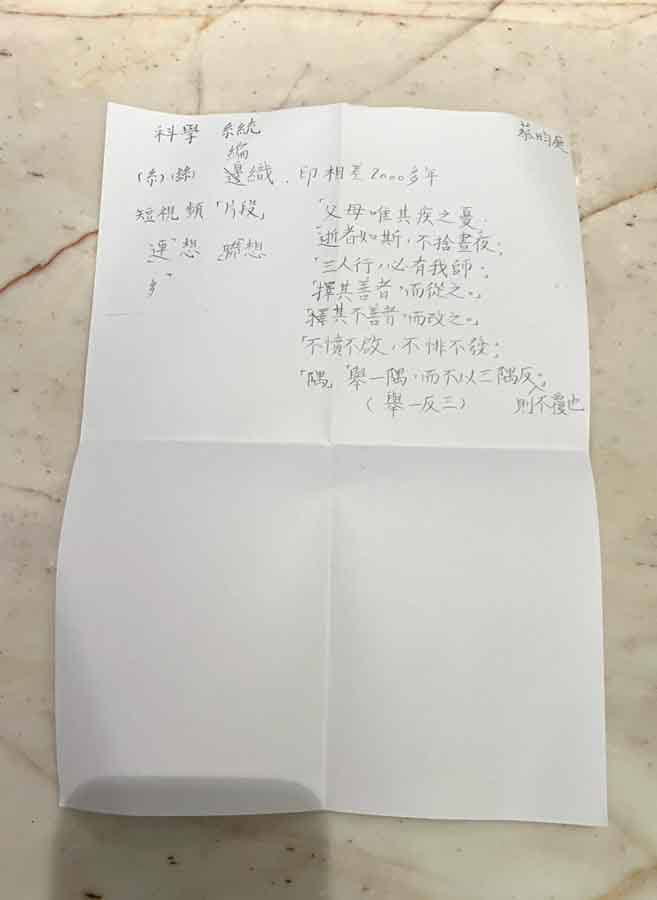 科學 系統
蔡昀
編
(糸)(絲) 邊織. 印相差2000多年
短視頻「片段」
連想 聯想
「父母唯其疾之憂.
「逝者如斯,不捨晝夜」
「三人行,必有我師;
擇其善者,而從之.」
擇其不善者,而改之.」
「不憤不啟,不悱不發;
「隅」「舉一隅,而不以三隅反;
(舉一反三) 則不覆也